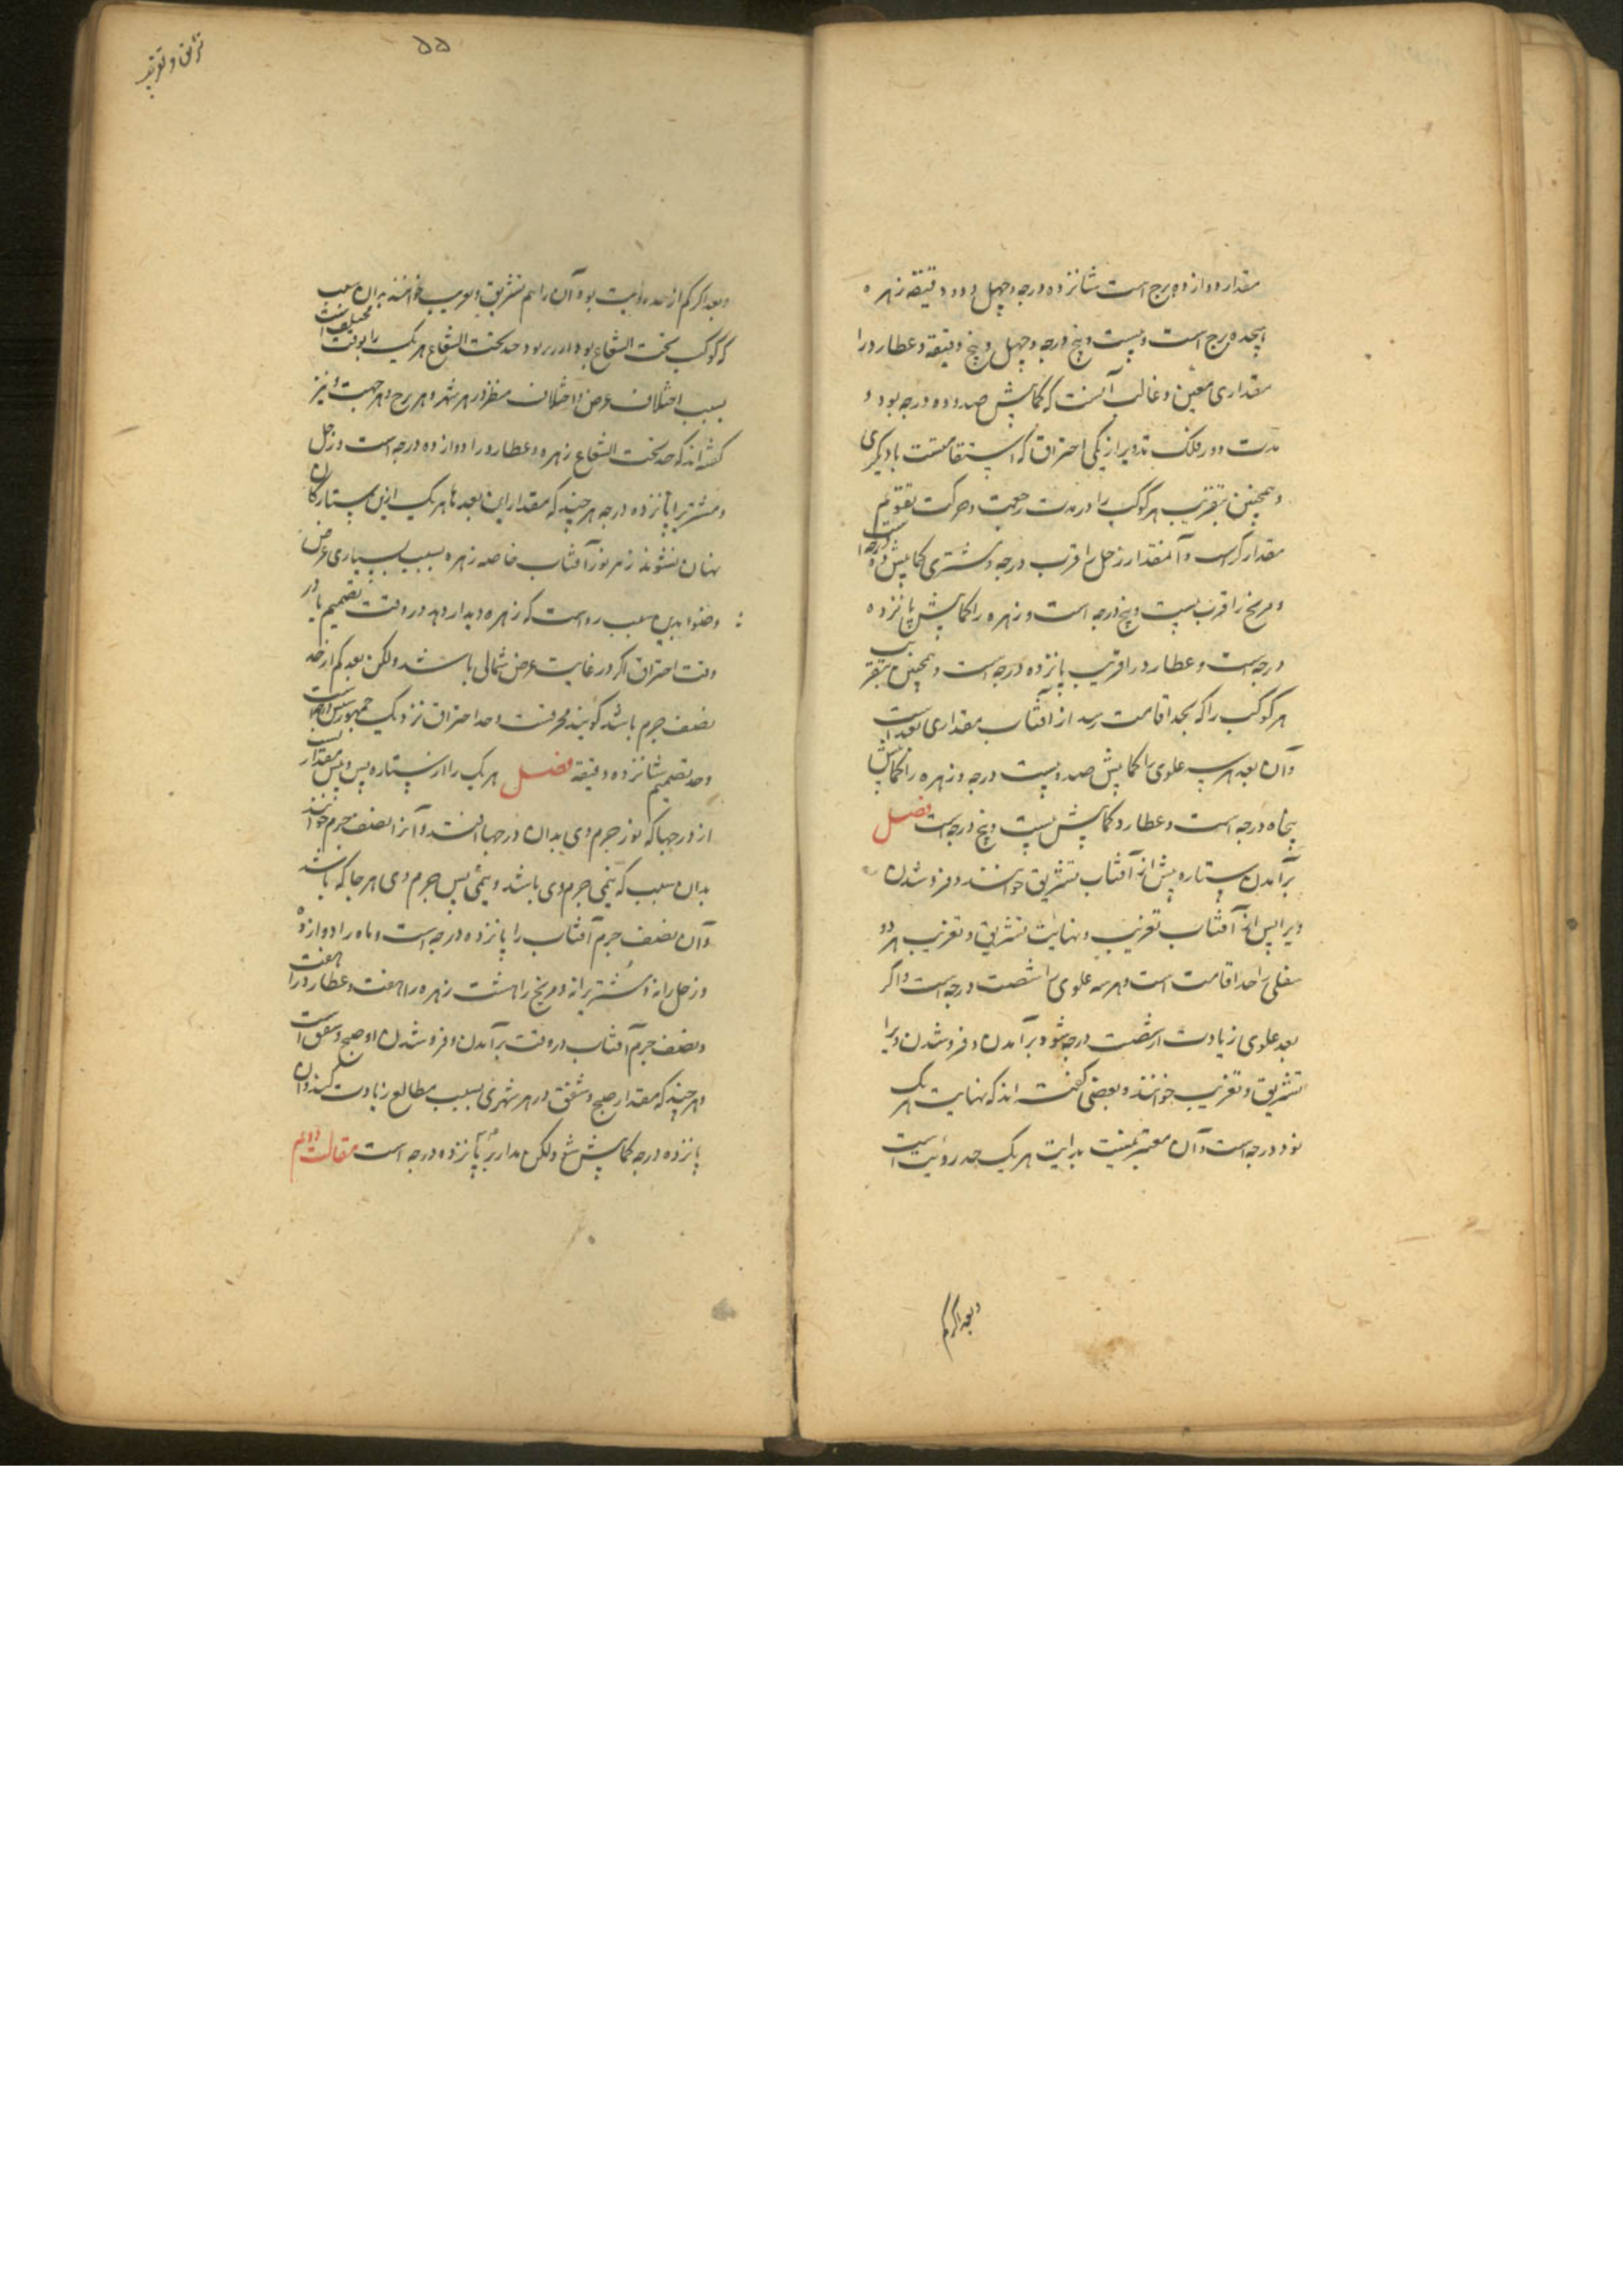 مقدار دوازده برج است شانزده درجه و چهل و دو دقیقه زهره
هجده برج است و بیست و پنج درجه و چهل و پنج دقیقه و عطارد را
مقداری معین و غالب آنست که کمابیش صد و ده درجه بود و
مدت دور فلک تدویر از یکی احتراق که استقامتست با دیگری
و همچنین بتقریب هر کوکب را در مدت رجعت و حرکت تقویم
مقدار است و آنمقدار زحل را قرب درجه و مشتری کمابیش ده درجه است
و مریخ را قرب بیست و پنج درجه است و زهره را کمابیش پانزده
درجه است و عطارد را قریب پانزده درجه است و همچنین بتقریب
هر کوکب را که بحد اقامت رسد از آفتاب مقداری بعد است
و آن بعد هر سه علوی را کمابیش صد و بیست درجه و زهره را کمابیش
پنجاه درجه است و عطارد کمابیش بیست و پنج درجه است فصل
برآمدن ستاره پیش از آفتاب تشریق خوانند و فرو شدن
ویرا پس از آفتاب تغریب و نهایت تشریق و تغریب هر دو
سفلی را حد اقامت است و هر سه علوی را شصت درجه است و اگر
بعد علوی زیادت از شصت درجه شود برآمدن و فرو شدن ویرا
تشریق و تغریب خوانند و بعضی گفته اند که نهایت هر یک
نود درجه است و آن معتبر نیست بدایت هر یک حد رؤیت است
و بعد اگر کم
تشریق و تغریب
۵۵
و بعد اگر کم از حد رؤیت بود آن را هم تشریق و تغریب خوانند بدان سبب
که کوکب تحت الشعاع بود و حد تحت الشعاع هر یک را بوقت مختلف است
بسبب اختلاف عرض و اختلاف منظر در هر شهر و هر برج و هر جهت و نیز
گفته اند که حد تحت الشعاع زهره و عطارد را دوازده درجه است و زحل
و مشتری را پانزده درجه هر چند که مقدار این بعدها هر یک از این ستارگان
پنهان نشوند زهر نور آفتاب خاصه زهره بسبب بسیاری عرض
وضوا بدین سبب رواست که زهره دیدار دهد در وقت تصمیم یا در
وقت احتراق اگر در غایت عرض شمالی باشد ولکن بعد کم از حد
نصف جرم باشد گویند محترقست و حد احتراق نزدیک جمهور شش درجه است
و حد تصمیم شانزده دقیقه فصل هر یک را از ستاره پس و پیش مقدار است
از درجها که نور جرم وی بدان درجها افتد و آنرا نصف جرم خوانند
بدان سبب که نیمی جرم وی باشد و نیمی پس جرم وی هر جا که باشد
و آن نصف جرم آفتاب را پانزده درجه است و ماه را دوازده
و زحل را نه و مشتری را نه و مریخ را هشت زهره را هفت و عطارد را هفت
و نصف جرم آفتاب در وقت برآمدن و فرو شدن او صبح و شفق است
و هر چند که مقدار صبح و شفق در هر شهری بسبب مطالع زیادت کند و آن
پانزده درجه کمابیش شود ولکن مدار بر پانزده درجه است مقالت دوم